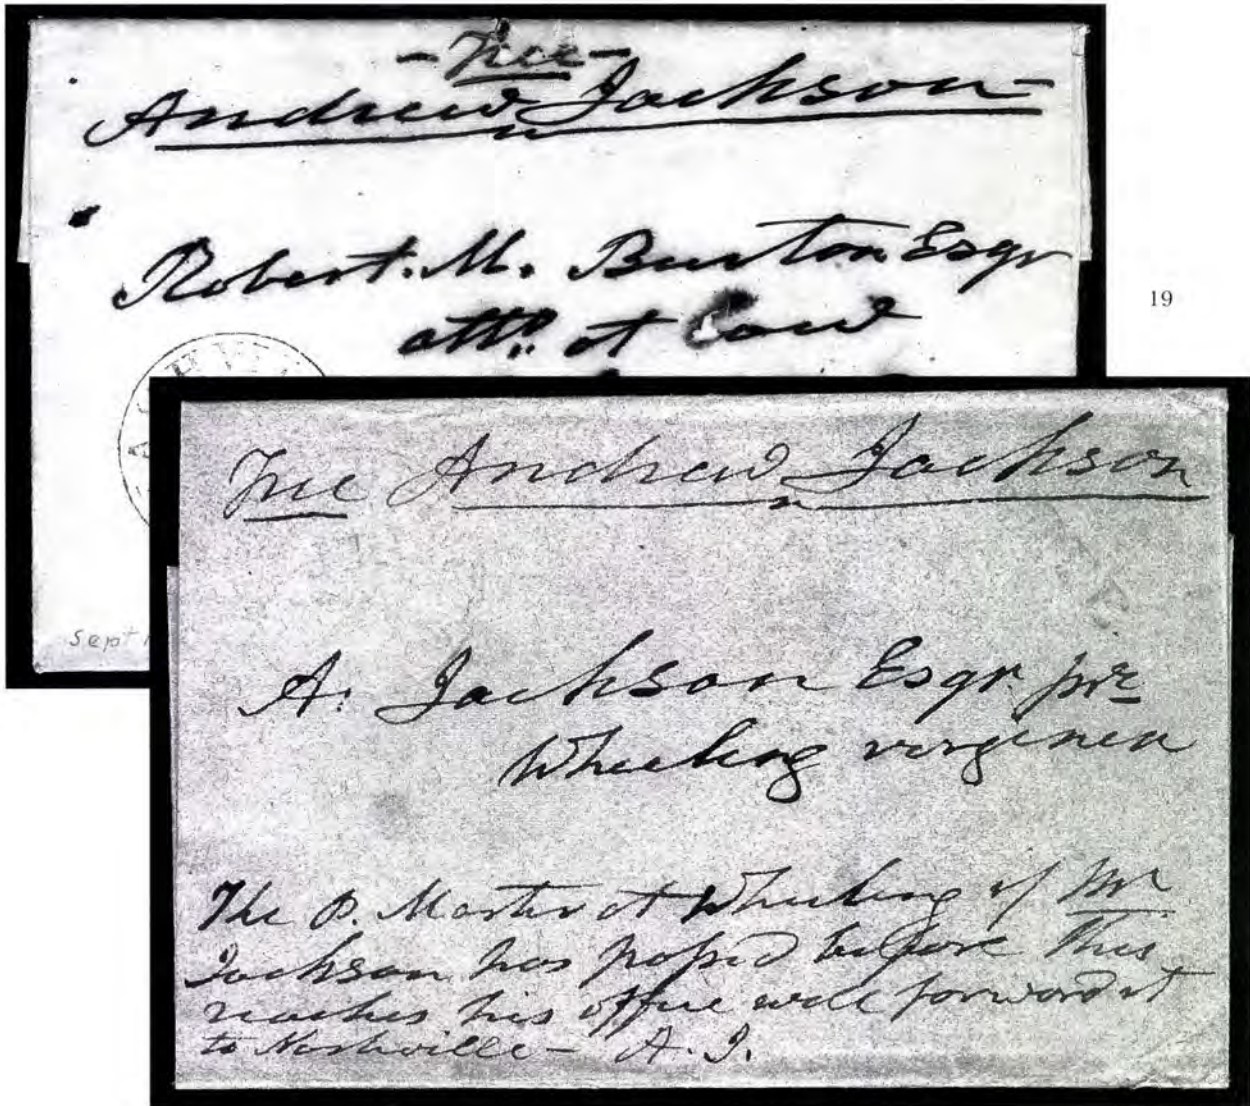 - Free -
Andrew Jackson
Robert. M. Burton Esqr
atto. at Law
19
Sept
Free Andrew Jackson
A. Jackson Esqr. jnr
Wheeling virginia
The P. Master at Wheeling if Mr.
Jackson has passed before This
reaches his office will forward it
to Nashville - A. J.